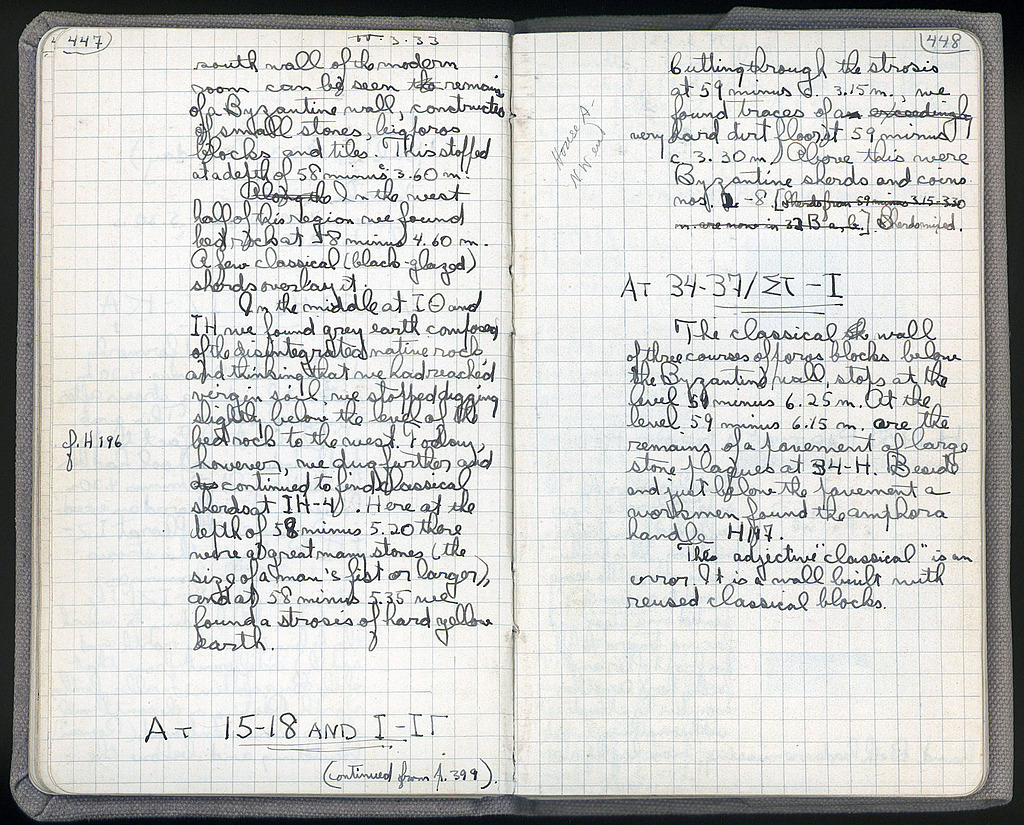 447
3.33
south wall of the modern
room can be seen the remains
of a Byzantine wall, constructed
of small stones, big poros
blocks and tiles. This stopped
at a depth of 58 minus 3.60 m.
Along the In the west
half of this region we found
bed rock at 58 minus 4.60 m.
A few classical (black-glazed)
sherds overlay it.
In the middle at IΘ and
IH we found grey earth composed
of the disintegrated native rock,
and thinking that we had reached
virgin soil, we stopped digging
slightly below the level of the
bed rock to the west. Today,
cf. H 196
however, we dug further and
continued to find classical
sherds at IH-4. Here at the
depth of 58 minus 5.20 there
were a great many stones (the
size of a man's fist or larger),
and at 58 minus 5.35 we
found a strosis of hard yellow
earth.
AT 15-18 AND I-IΓ
(continued from p. 399).
448
Cutting through the strosis
at 59 minus c. 3.15 m., we
found traces of an exceedingly
very hard dirt floor at 59 minus
c. 3.30 m. Above this were
Byzantine sherds and coins
nos. 1-8. [Sherds from 59 minus 3.15-3.30
m. are now in 32 B a, b.]. Sherds mixed.
House A-
NW end
AT 34-37/ΣT-I
The classical wall
of three courses of poros blocks below
the Byzantine wall, stops at the
level 59 minus 6.25 m. At the
level 59 minus 6.15 m. are the
remains of a pavement of large
stone plaques at 34-H. Beside
and just below the pavement a
workmen found the amphora
handle H 197.
The adjective "classical" is an
error. It is a wall built with
reused classical blocks.